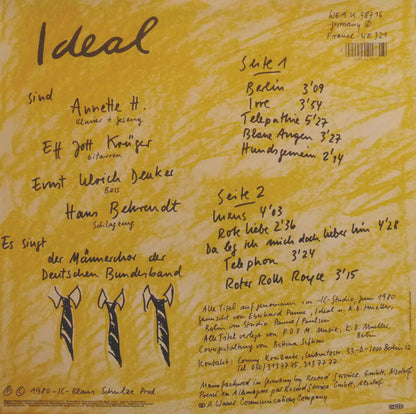 Ideal
WEA K 58716
Germany Ⓟ
France WE 321
sind
Annette H.
Klavier + Gesang
Eff Jott Krüger
Gitarren
Ernst Ulrich Deuker
Bass
Hans Behrendt
Schlagzeug
Es singt
der Männerchor der
Deutschen Bundesband
Seite 1
Berlin 3'09
Irre 3'54
Telepathie 5'27
Blaue Augen 3'27
Hundsgemein 2'14
Seite 2
Luxus 4'03
Rote Liebe 2'36
Da leg ich mich doch lieber hin 4'28
Telephon 3'24
Roter Rolls Royce 3'15
Alle Titel aufgenommen im -IC-Studio, Juni 1980
gemischt von Eberhard Panne, Ideal u. K.D. Mueller,
Berlin im Studio Panne / Paulsen
Alle Titel verlegt von P.O.E.M. Musik, K.D. Mueller,
Berlin
Covergestaltung von Bettina
Kontakt: Conny Konzack, 33, D-1000 Berlin 12
Tel. 030/
Manufactured in Germany by Record Service GmbH, Alsdorf
Pressé en Allemagne par Record Service GmbH, Alsdorf
A Warner Communications Company
Ⓟ © 1980 -IC- Klaus Schulze Prod